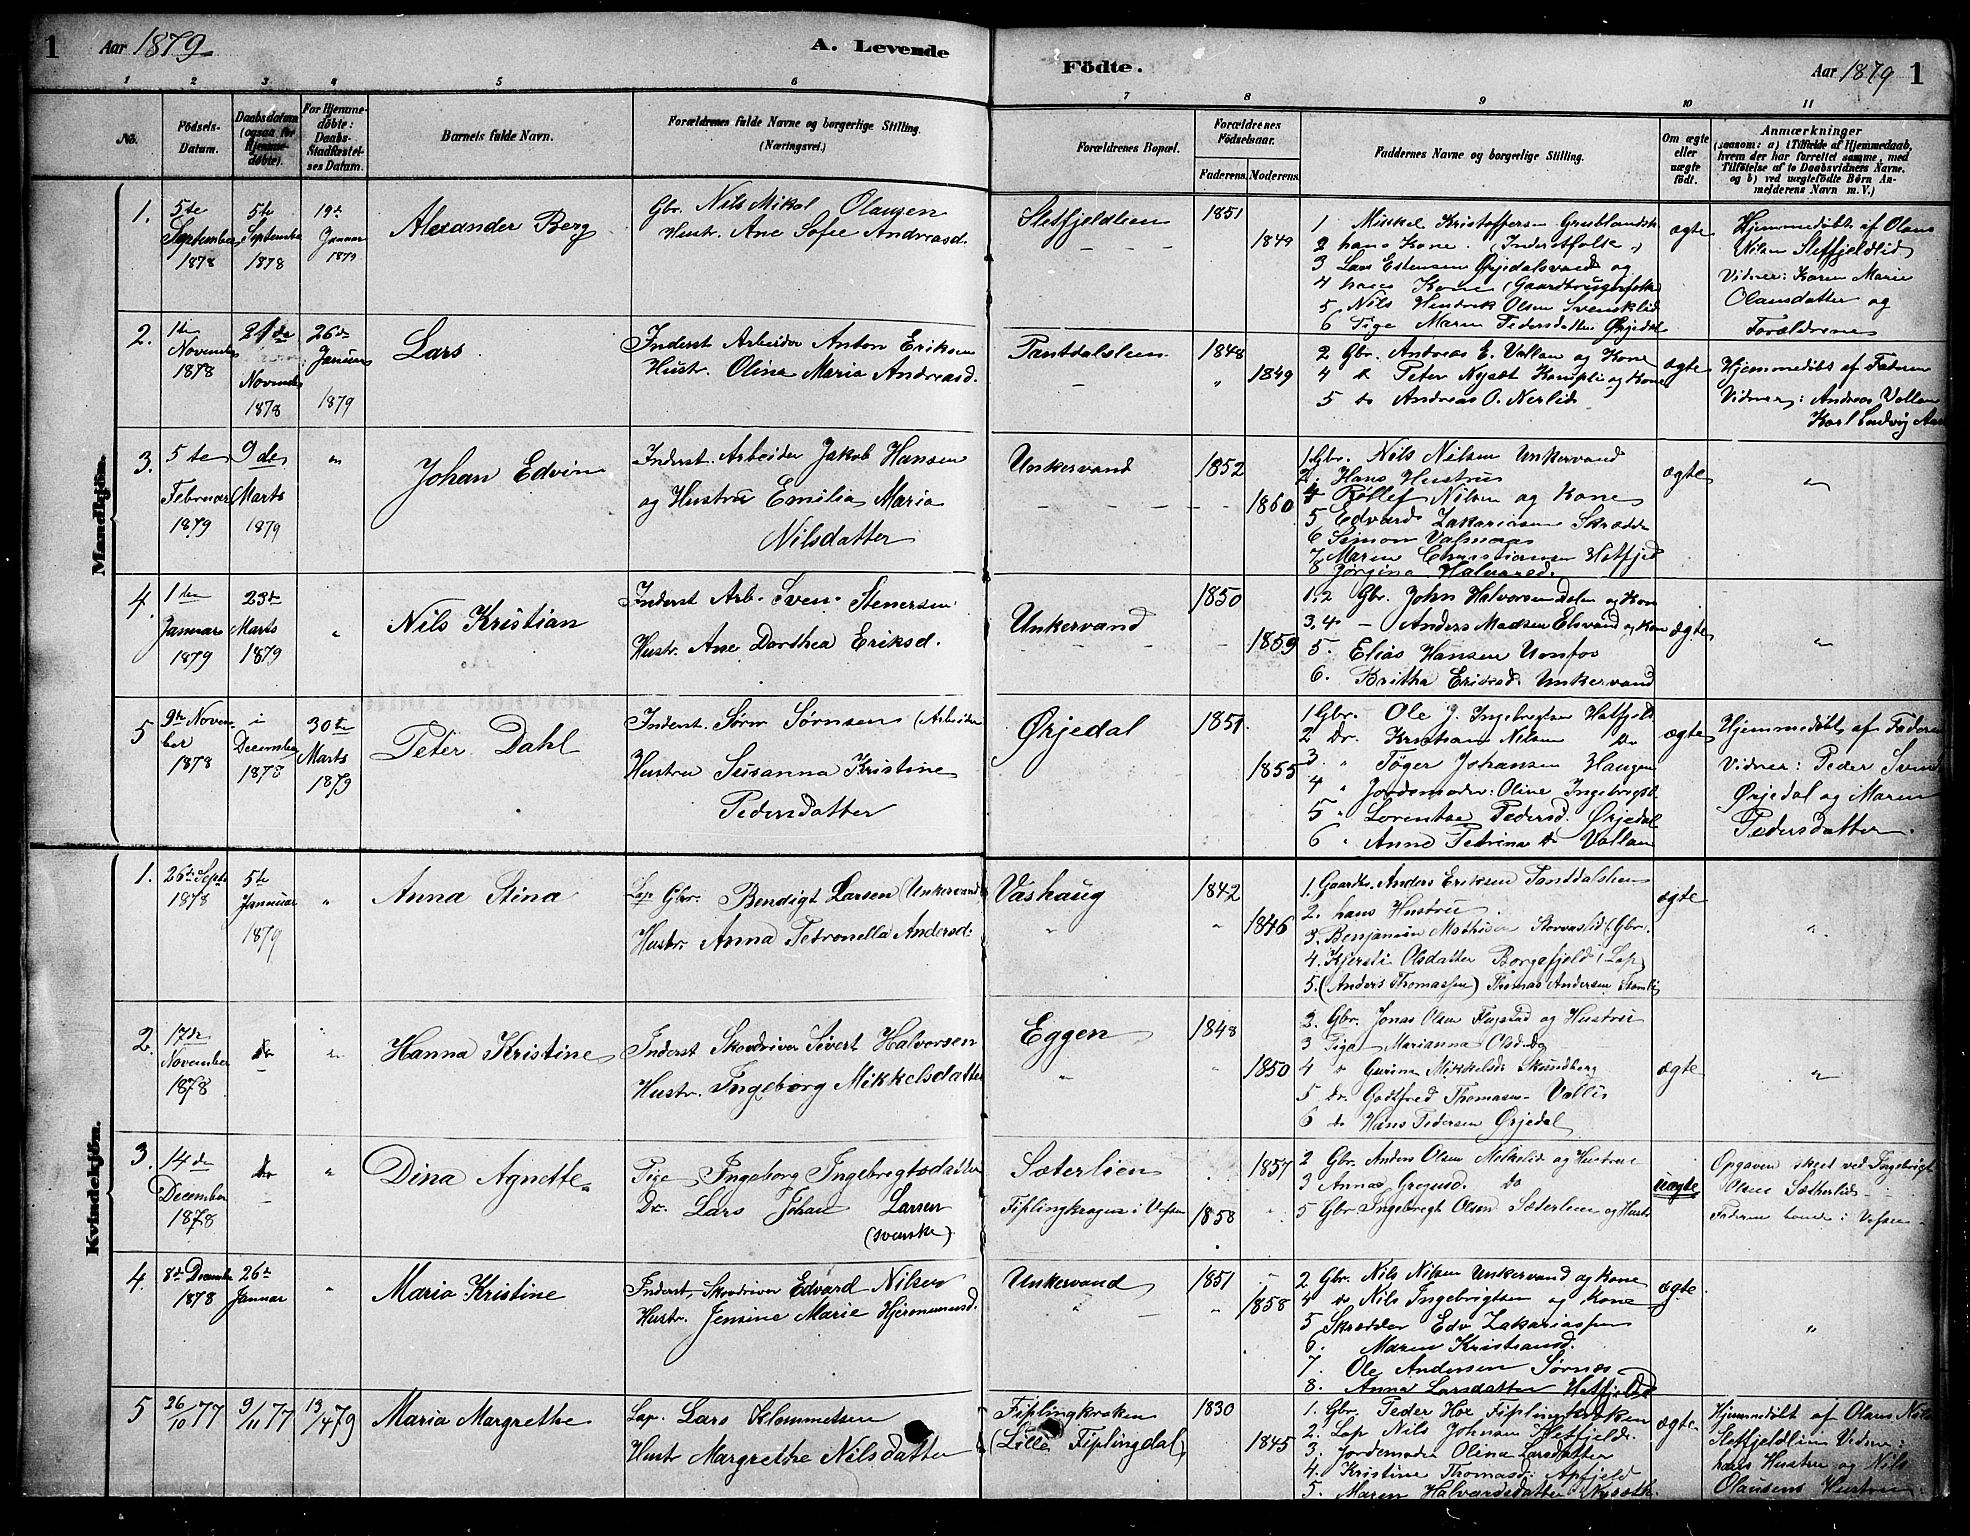 1 Aar 1879 A. Levende Födte. Aar 1879 1
1 2 3 4 5 6 7 8 9 10 11
No. Födsels-Datum. Daabsdatum (ogsaa for Hjemmedöbte). For Hjemmedöbte: Daabs-Stadfæstelses Datum. Barnets fulde Navn. Forældrenes fulde Navne og borgerlige Stilling. (Næringsvei.) Forældrenes Bopæl. Forældrenes Födselsaar. Faderens. Moderens. Faddernes Navne og borgerlige Stilling. Om ægte eller uægte födt. Anmærkninger (saasom: a) i Tilfælde af Hjemmedaab, hvem der har forrettet samme, med Tilföielse af to Daabsvidners Navne. og b) ved uægtefödte Börn Anmelderens Navn m. V.)
Mandkjön.
1. 5te September 1878 5te September 1878 19de Januar 1879 Alexander Berg
Gbr. Nils Mikal Olausen
Hustr. Ane Sofie Andreasd.
Sletfjeldlien 1851 1849
1 Mikkel Kristoffersen Grublandsk
2 hans Kone. (Inderstfolk)
3 Lars Estensen Ørjedalsvand og
4 hans Kone (Gaardbrugerfolk)
5 Nils Hendrik Olsen Svensklid
6 Pige Maren Pedersdatter Ørjedal
ægte
Hjemmedøbt af Olaus
Nilsen Sletfjeldlid
Vidner: Karen Marie
Olausdatter og
Forældrene
2. 1te November 1878 21de November 1878 26de Januar 1879 Lars
Inderst Arbeider Anton Eriksen
Hustr. Olina Maria Andreasd.
Tantdalslien 1848 1849
2 Gbr. Andreas E. Vollan og Kone
4 do Peter Nysæt Kampli og Kone
5 do Andreas O. Nerlid
ægte
Hjemmedøbt af Faderen
Vidner: Andreas Vollan
Karl Ludvig
3. 5te Februar 1879 9de Marts 1879 " Johan Edvin
Inderst. Arbeider Jakob Hansen
og Hustru Emilia Maria
Nilsdatter
Unkervand 1852 1860
1 Gbr. Nils Nilsen Unkervand
2. Hans Hustru
4 Rollef Nilsen og Kone
5 Edvard Zakariasen Skrædder
6 Simon Valmoas
7 Maren Christiansen Hatfjed
8 Jørgine Halvarsd.
ægte "
4. 1te Januar 1879 23de Marts 1879 " Nils Kristian
Inderst Arb. Sven Stenersen
Hustr. Ane Dorthea Eriksd.
Unkervand 1850 1859
1.2 Gbr. John Halvorsen Dalen og Kone
3.4 - Anders Madsen Elsvand og Kone
5. Elias Hansen Unfos
6. Britha Eriksd. Unkervand
ægte "
5 9te November 1878 i December 1878 30te Marts 1879 Peter Dahl
Inderst. Sørn Sørnsen (Arbeider
Hustru Susanna Kristine
Pedersdatter
Ørjedal 1851 1855
1 Gbr. Ole J. Ingebrigtsen Hatfjeld
2 Dr. Kristian Nilsen Do
3 " Tøger Johansen Haugen
4 " Jordemoder: Oline Ingebrigtsd
5 " Lorentse Pedersd. Ørjedal
6 " Anne Petrina do Vollan
ægte
Hjemmedøbt af Faderen
Vidner: Peder Svend
Ørjedal og Maren
Pedersdatter.
Kvindekjön.
1. 26de Septb 1878 5te Januar 1879 " Anna Stina
Lap Gbr. Bendigt Larsen (Unkervand
Hustr Anna Petronella Andersd.
Vashaug 1842 1846
1. Gaardbr. Anders Eriksen Tantdalslien
2. hans Hustru
3. Benjamin Mathisen Storvaslid (Gbr.
4. Kjersti Olsdatter Borgefjeld (Lap)
5. (Anders Thomassen) Thomas Andersen Stamli
ægte "
2. 17de November 1878 do " Hanna Kristine
Inderst Skovdriver Sivert Halvorsen
Hustr. Ingeborg Mikkelsdatter
Eggen 1848 1850
2. Gbr. Jonas Olsen Flugstad og Hustru
3 Pige Marianna Olsd. Do
4 do Gurina Mikkelsd. Skundberg
5 dr. Godtfred Thomasen Vallis
6 do Hans Pedersen Ørjedal
ægte "
3. 14de December 1878 do " Dina Agnette
Pige Ingeborg Ingebrigtsdatter
Dr. Lars Johan Larsen
(svenske)
Sæterlien 1857
Fiplingkrogen i Vefsen 1858
2 Gbr. Anders Olsen Mikkelid og Hustru
3 Anna Gregusd. do
5 Gbr Ingebrigt Olsen Sæderlien og Hustr
uægte
Opgaven skeet ved Ingebrigt
Olsen Sætherlid
Faderen boende i Vefsen
4. 8de December 1878 26de Januar " Maria Kristine
Inderst, Skovdriver Edvard Nilsen
Hustr. Jensine Marie Hjermunnsd.
Unkervand 1851 1858
2 Gbr. Nils Nilsen Unkervand og Kone
4 do Nils Ingebrigtsen og Kone
5 Skrædder Edv Zakariassen
6. Maren Kristiansd.
7. Ole Andersen Sørnæs
8. Anna Larsdatter Hatfjeld
ægte "
5 26/10 77 9/11 77 13/4 79 Maria Margrethe
Lap. Lars Klemmetsen
Hustr Margrethe Nilsdatter
Fiplingkroken
(Lille Fiplingdal)
1830 1845
1. Gbr. Peder Hoe Fiplingkroken
2. Lap Nils Johnsen Hatfjeld.
3. Jordemoder Olina Larsdatter
4. Kristine Thomasd. Apfjeld
5. Maren Halvardsdatter
ægte
Hjemmedøbt af Olaus Nils
Sletfjeldlien Vidner:
hans Hustru og Nils
Olausens Hustru